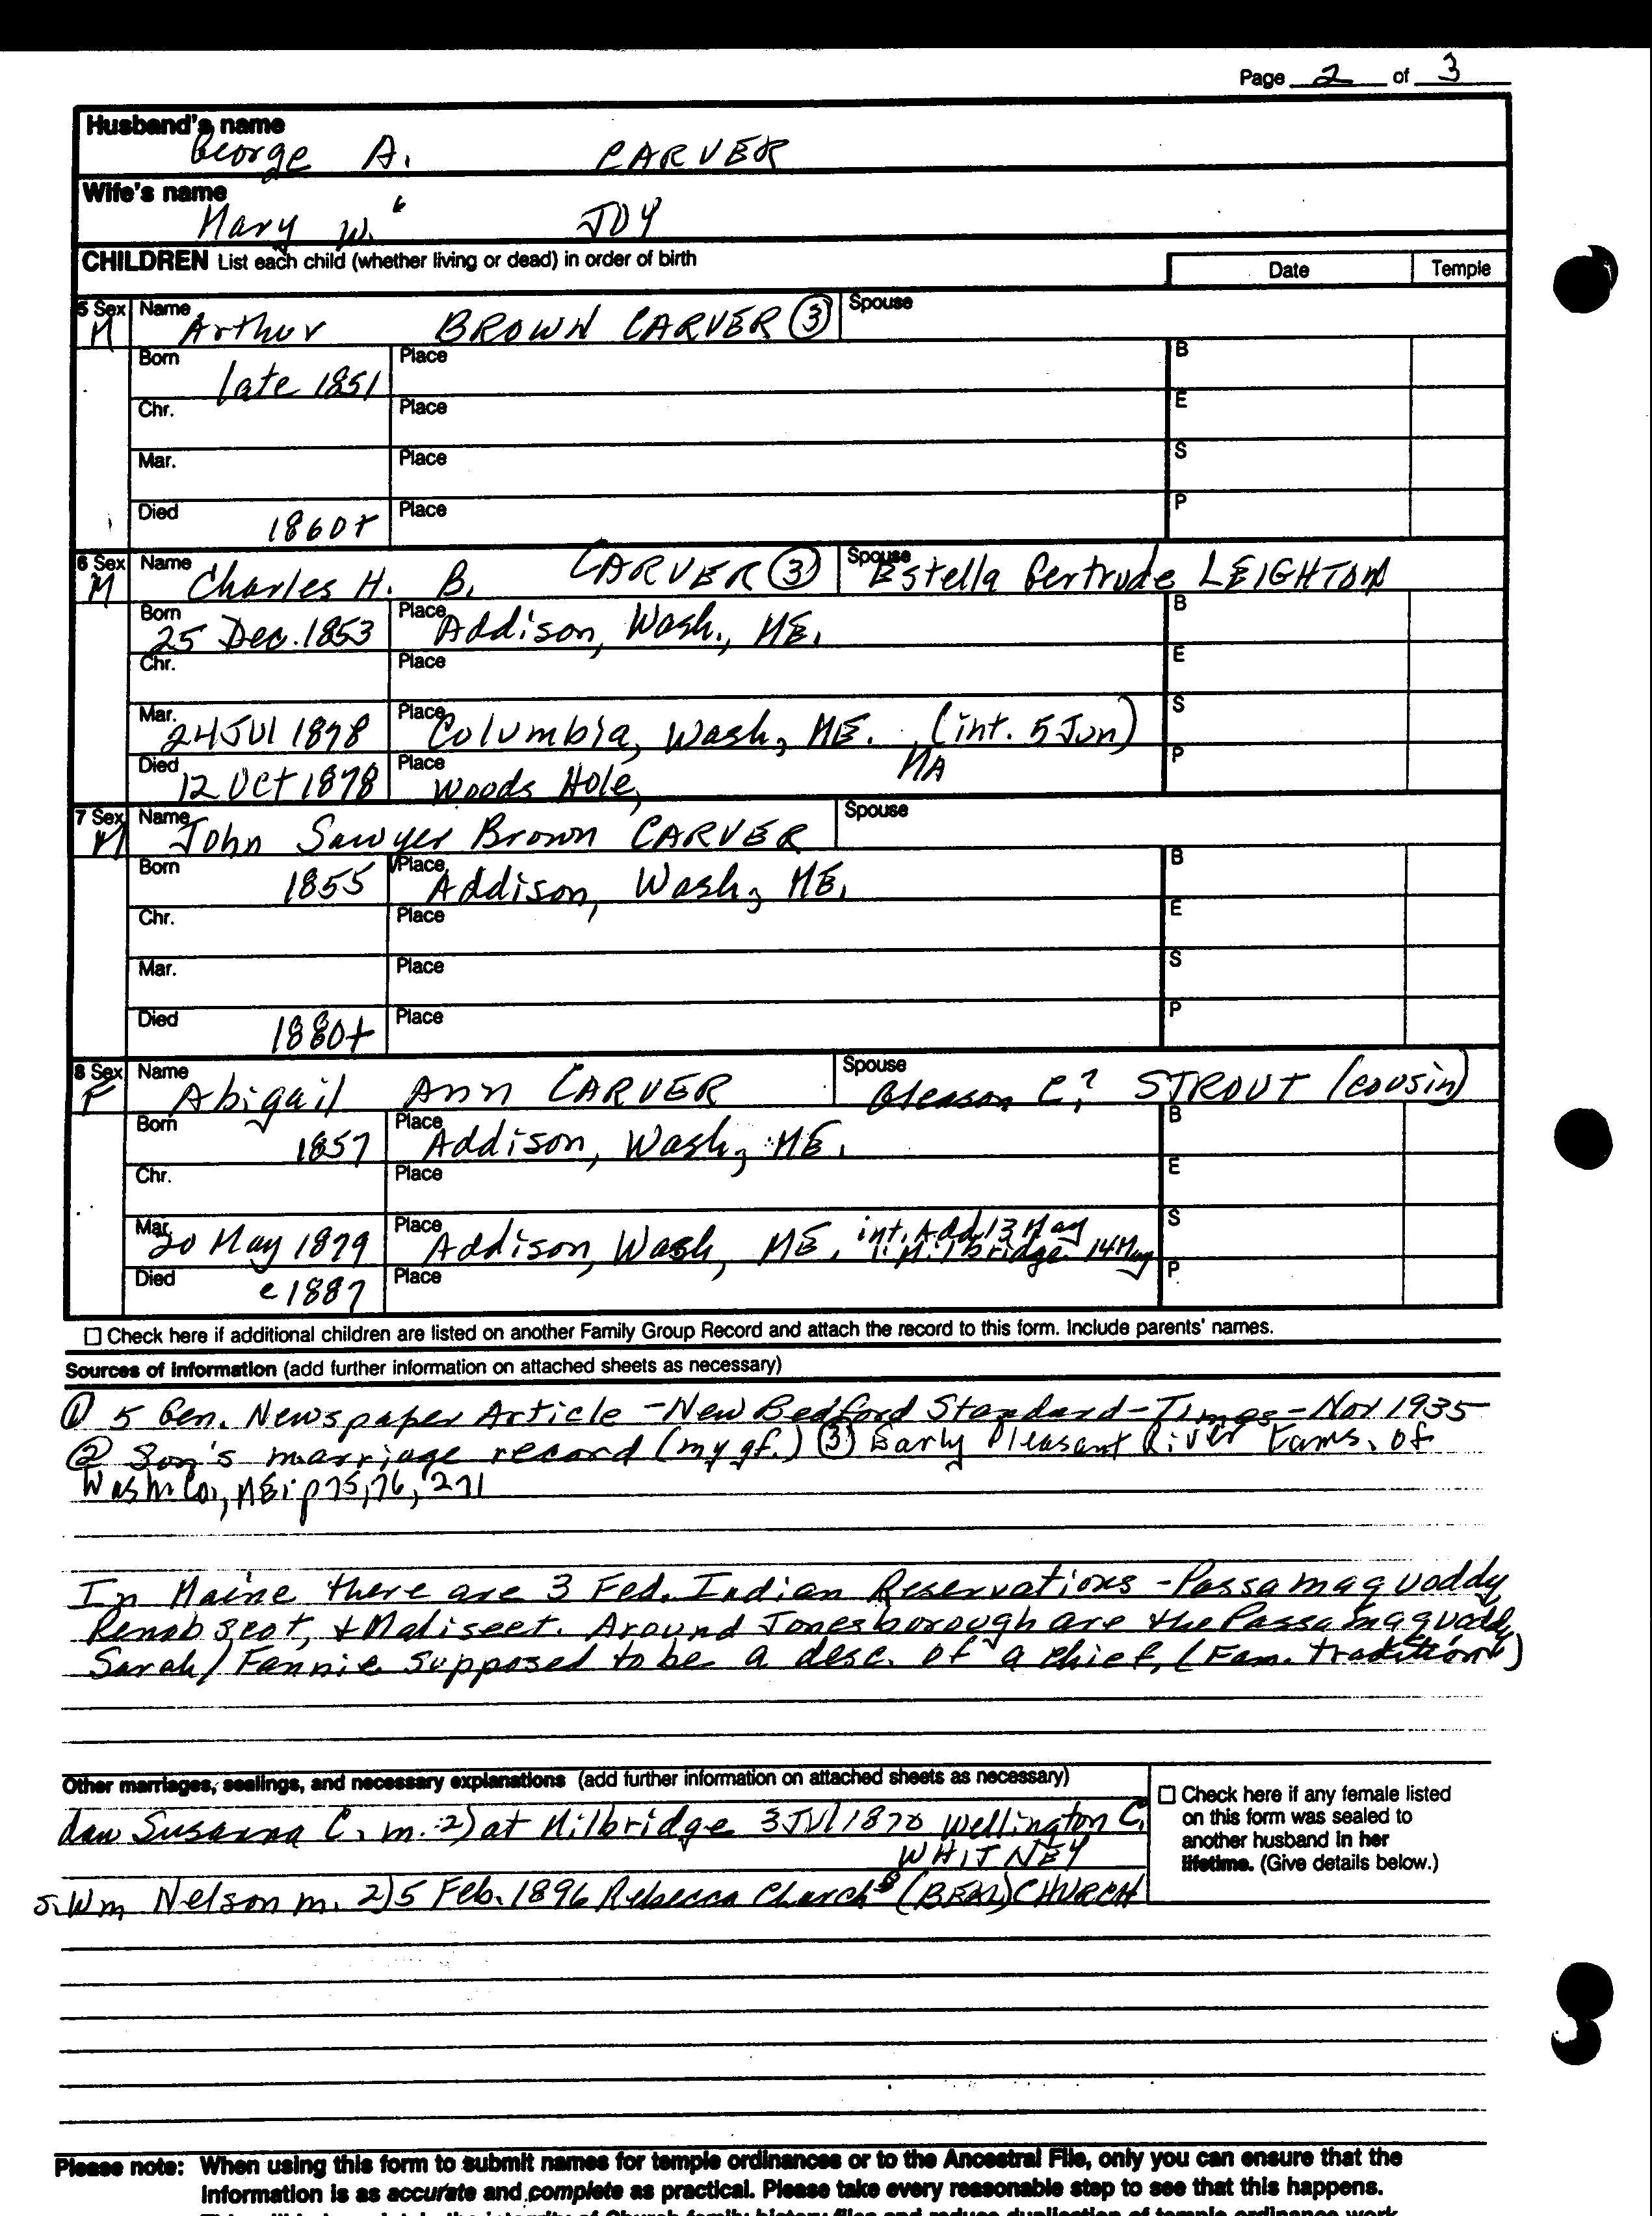 Page 2 of 3
Husband's name
George A. CARVER
Wife's name
Mary W. 6 JOY
CHILDREN List each child (whether living or dead) in order of birth Date Temple
5 Sex Name Spouse
M Arthur BROWN CARVER ③
Born Place B
late 1851
Chr. Place E
Mar. Place S
Died Place P
1860+
6 Sex Name Spouse
M Charles H. B. CARVER ③ Estella Gertrude LEIGHTON
Born Place B
25 Dec. 1853 Addison, Wash., ME.
Chr. Place E
Mar. Place S
24 JUl 1878 Columbia, Wash, ME. (int. 5 Jun)
Died Place P
12 Oct 1878 Woods Hole, MA
7 Sex Name Spouse
M John Sawyer Brown CARVER
Born Place B
1855 Addison, Wash, ME.
Chr. Place E
Mar. Place S
Died Place P
1880+
8 Sex Name Spouse
F Abigail Ann CARVER Gleason C.? STROUT (cousin)
Born Place B
1857 Addison, Wash, ME.
Chr. Place E
Mar. Place S
20 May 1879 Addison, Wash, ME. int. Add. 13 May
" Milbridge 14 May
Died Place P
c 1887
☐ Check here if additional children are listed on another Family Group Record and attach the record to this form. Include parents' names.
Sources of information (add further information on attached sheets as necessary)
① 5 Gen. Newspaper Article - New Bedford Standard-Times - Nov 1935
② Son's marriage record (my gf.) ③ Early Pleasant River Fams. of
Wash Co., ME; p 75, 76, 271
In Maine there are 3 Fed. Indian Reservations - Passamaquoddy
Penobscot, + Maliseet. Around Jonesborough are the Passamaquoddy
Sarah/Fannie supposed to be a desc. of a chief, (Fam. tradition)
Other marriages, sealings, and necessary explanations (add further information on attached sheets as necessary)
☐ Check here if any female listed
on this form was sealed to
another husband in her
lifetime. (Give details below.)
dau Susanna C. m. 2) at Milbridge 3 JUl 1870 Wellington C.
WHITNEY
s. Wm Nelson m. 2) 5 Feb. 1896 Rebecca Church (BEAL) CHURCH
Please note: When using this form to submit names for temple ordinances or to the Ancestral File, only you can ensure that the
information is as accurate and complete as practical. Please take every reasonable step to see that this happens.